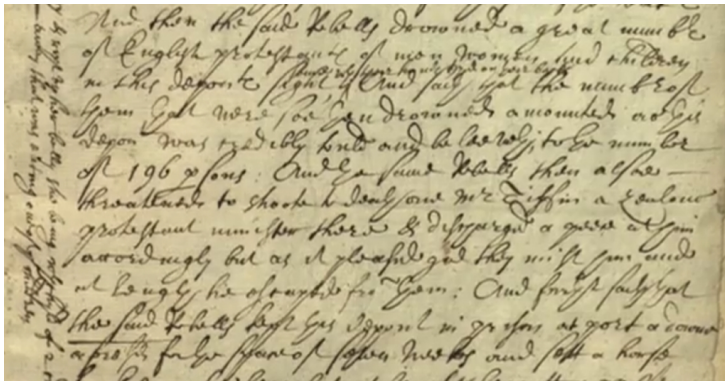 And then the said Rebells drowned a great number
of English protestants of men women and children
in this deponts sight And saith that the numbers of
them that were soe then drowned amounted as this
depont was credibly tould and beleeveth to the number
of 196 psons: And the same Rebells then alsoe
threatened to shoote to death one Mr Tiffin a zealous
protestant minister there & discharged a peece at him
accordingly but as it pleased god they mist him and
at length he escaped from them: And further saith that
the said Rebells kept this depont in prison at port a downe
aforesaid for the space of seven weeks and sett a horse